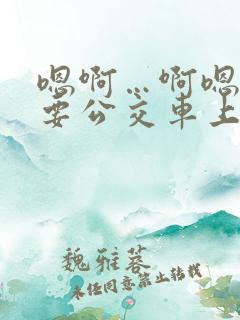 嗯啊…啊嗯
要公交车上
魏雅蓉
未经同意禁止转载